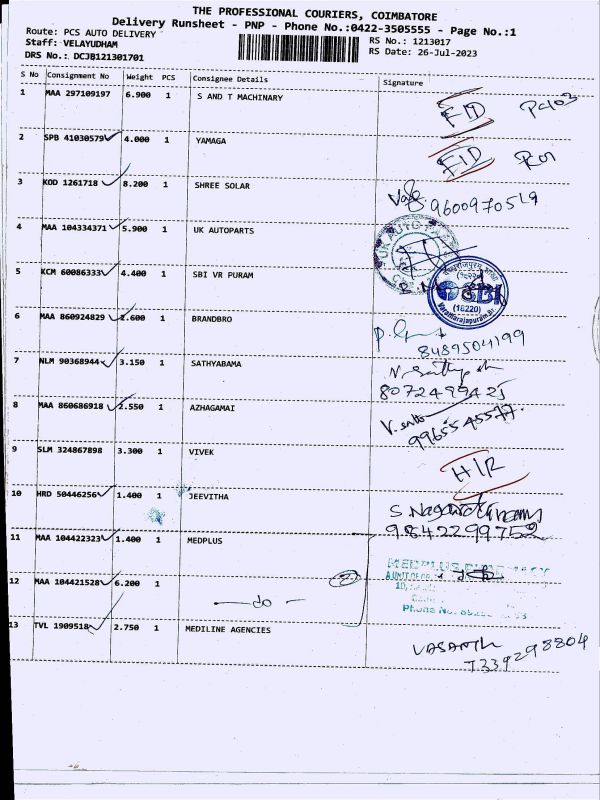 THE PROFESSIONAL COURIERS, COIMBATORE
Delivery Runsheet - PNP - Phone No.:0422-3505555 - Page No.:1
Route: PCS AUTO DELIVERY
Staff: VELAYUDHAM
RS No.: 1213017
DRS No.: DCJB121301701
RS Date: 26-Jul-2023
S No Consignment No Weight PCS Consignee Details Signature
1 MAA 297109197 6.900 1 S AND T MACHINARY FID
2 SPB 41030579 4.000 1 YAMAGA FID
3 KOD 1261718 8.200 1 SHREE SOLAR
9600970519
4 MAA 104334371 5.900 1 UK AUTOPARTS
UK AUTO PARTS
5 KCM 60086333 4.400 1 SBI VR PURAM
SBI
(16220)
6 MAA 860924829 2.600 1 BRANDBRO
8489504199
7 NLM 90368944 3.150 1 SATHYABAMA
8072499425
8 MAA 860686918 2.550 1 AZHAGAMAI
9965545577
9 SLM 324867898 3.300 1 VIVEK H/R
10 HRD 50446256 1.400 1 JEEVITHA
9842299752
11 MAA 104422323 1.400 1 MEDPLUS
MEDPLUS
12 MAA 104421528 6.200 1 —do— 2
Phone No.
13 TVL 1909518 2.750 1 MEDILINE AGENCIES
VASANTH
7339298804